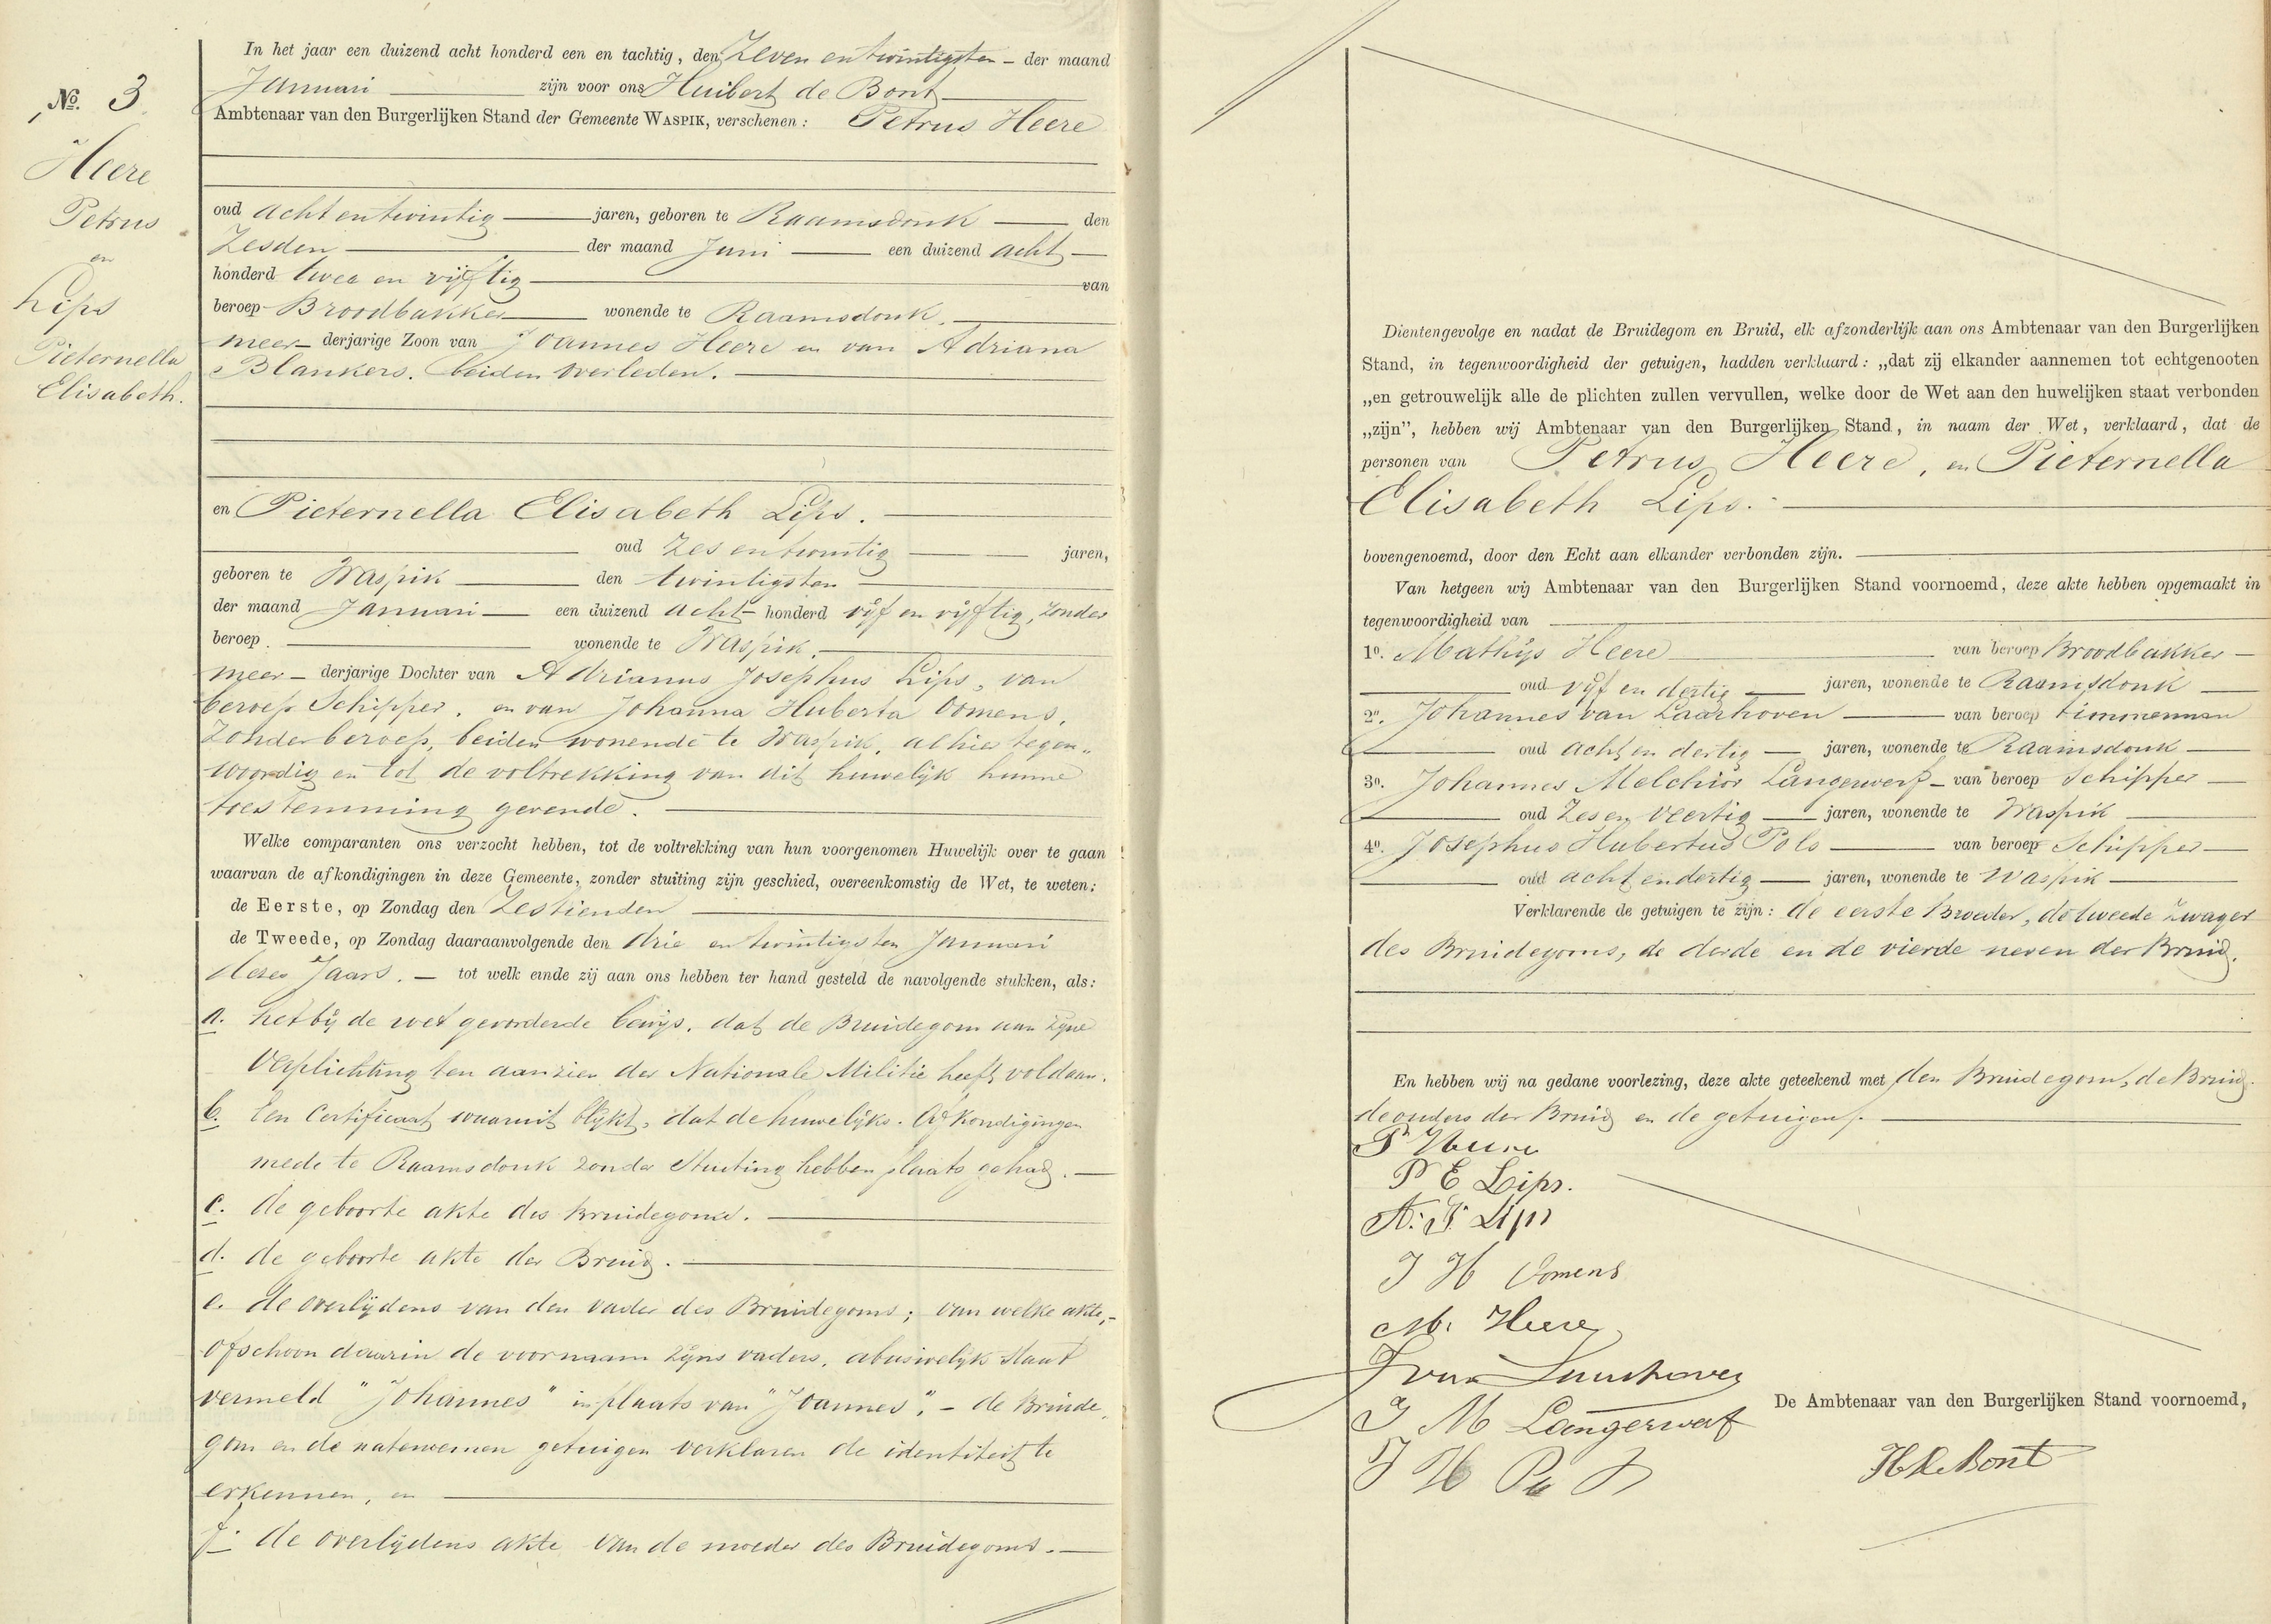 No. 3
Heere
Petrus
en
Lips
Pieternella
Elisabeth.
In het jaar een duizend acht honderd een en tachtig, den Zeven en twintigsten - der maand
Januari zijn voor ons Huibert de Bont
Ambtenaar van den Burgerlijken Stand der Gemeente WASPIK, verschenen: Petrus Heere
oud acht en twintig jaren, geboren te Raamsdonk den
Zesden der maand Juni een duizend acht
honderd twee en vijftig van
beroep Broodbakker wonende te Raamsdonk.
meer- derjarige Zoon van Joannes Heere en van Adriana
Blankers, beiden overleden.
en Pieternella Elisabeth Lips.
oud zes en twintig jaren,
geboren te Waspik den twintigsten
der maand Januari een duizend acht honderd vijf en vijftig, zonder
beroep. wonende te Waspik.
meer- derjarige Dochter van Adrianus Josephus Lips, van
beroep Schipper, en van Johanna Huberta Oomens,
Zonder beroep, beiden wonende te Waspik, alhier tegen-
woordig en tot de voltrekking van dit huwelijk hunne
toestemming gevende.
Welke comparanten ons verzocht hebben, tot de voltrekking van hun voorgenomen Huwelijk over te gaan
waarvan de afkondigingen in deze Gemeente, zonder stuiting zijn geschied, overeenkomstig de Wet, te weten:
de Eerste, op Zondag den Zestienden
de Tweede, op Zondag daaraanvolgende den drie en twintigsten Januari
dezes Jaars. - tot welk einde zij aan ons hebben ter hand gesteld de navolgende stukken, als:
a. het bij de wet gevorderde bewijs, dat de Bruidegom aan zijne
Verplichting ten aanzien der Nationale Militie heeft voldaan.
b. Een Certificaat waaruit blijkt, dat de huwelijks-Afkondigingen
mede te Raamsdonk zonder Stuiting hebben plaats gehad.
c. de geboorte akte des Bruidegoms.
d. de geboorte akte der Bruid.
e. de overlijdens van den vader des Bruidegoms; van welke akte,-
ofschoon daarin de voornaam zijns vaders, abusivelijk staat
vermeld "Johannes" in plaats van "Joannes", - de Bruide-
gom en de natenoemen getuigen verklaren de identiteit te
erkennen, en
f. de overlijdens akte van de moeder des Bruidegoms.
Dientengevolge en nadat de Bruidegom en Bruid, elk afzonderlijk aan ons Ambtenaar van den Burgerlijken
Stand, in tegenwoordigheid der getuigen, hadden verklaard: „dat zij elkander aannemen tot echtgenooten
„en getrouwelijk alle de plichten zullen vervullen, welke door de Wet aan den huwelijken staat verbonden
„zijn”, hebben wij Ambtenaar van den Burgerlijken Stand, in naam der Wet, verklaard, dat de
personen van Petrus Heere, en Pieternella
Elisabeth Lips.
bovengenoemd, door den Echt aan elkander verbonden zijn.
Van hetgeen wij Ambtenaar van den Burgerlijken Stand voornoemd, deze akte hebben opgemaakt in
tegenwoordigheid van
1o. Mathijs Heere van beroep Broodbakker
oud vijf en dertig jaren, wonende te Raamsdonk
2o. Johannes van Laarhoven van beroep timmerman
oud acht en dertig jaren, wonende te Raamsdonk
3o. Johannes Melchior Langerwerf van beroep Schipper
oud Zes en Veertig jaren, wonende te Waspik
4o. Josephus Hubertus Pols van beroep Schipper
oud acht en dertig jaren, wonende te Waspik
Verklarende de getuigen te zijn: de eerste broeder, de tweede Zwager
des Bruidegoms, de derde en de vierde neven der Bruid.
En hebben wij na gedane voorlezing, deze akte geteekend met den Bruidegom, de Bruid,
de ouders der Bruid en de getuigen.
P Heere
P E Lips.
A. J. Lips
J H Oomens
M. Heere
J van Laarhoven
J M Langerwerf
De Ambtenaar van den Burgerlijken Stand voornoemd,
J H Pols
H de Bont